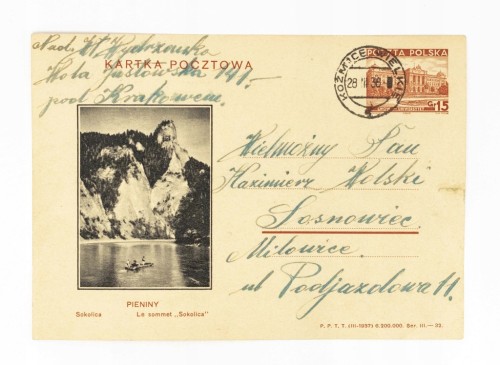 Nad. W. Wydrzanka
KARTKA POCZTOWA
Wola Justowska 141.
pod Krakowem
POCZTA POLSKA
GR 15
KOŹMICE WIELKIE
28 VI 38
Wielmożny Pan
Kazimierz Wolski
Sosnowiec
Milowice.
ul Podjazdowa 11.
PIENINY
Sokolica Le sommet „Sokolica"
P. P. T. T. (III-1937) 6.200.000. Ser. III. — 32.